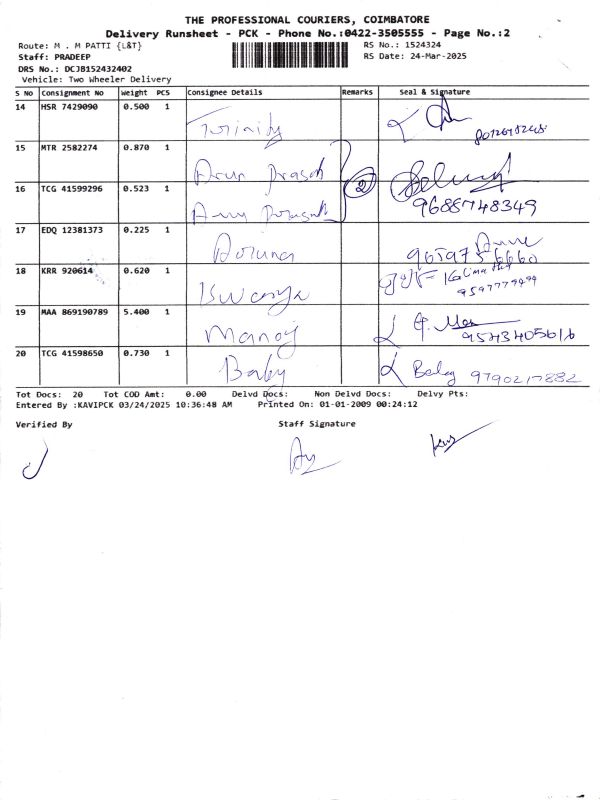 THE PROFESSIONAL COURIERS, COIMBATORE
Delivery Runsheet - PCK - Phone No.:0422-3505555 - Page No.:2
Route: M . M PATTI {L&T}
RS No.: 1524324
Staff: PRADEEP
RS Date: 24-Mar-2025
DRS No.: DCJB152432402
Vehicle: Two Wheeler Delivery
S No Consignment No Weight PCS Consignee Details Remarks Seal & Signature
14 HSR 7429090 0.500 1 Trinity
15 MTR 2582274 0.870 1 Arun Prasath
16 TCG 41599296 0.523 1 2 9688748349
17 EDQ 12381373 0.225 1 Aruna
18 KRR 920614 0.620 1 9597779499
19 MAA 869190789 5.400 1 Manoj
20 TCG 41598650 0.730 1 Baby Baby 9790217882
Tot Docs: 20 Tot COD Amt: 0.00 Delvd Docs: Non Delvd Docs: Delvy Pts:
Entered By :KAVIPCK 03/24/2025 10:36:48 AM Printed On: 01-01-2009 00:24:12
Verified By Staff Signature